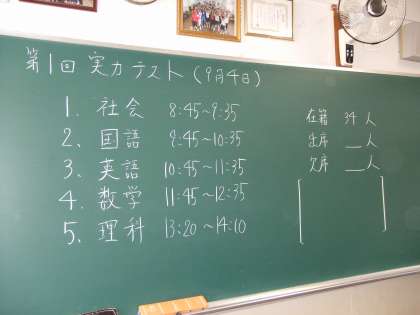 第1回 実力テスト(9月4日)
1. 社会 8:45~9:35
2. 国語 9:45~10:35
3. 英語 10:45~11:35
4. 数学 11:45~12:35
5. 理科 13:20~14:10
在籍 34 人
出席 __人
欠席 __人